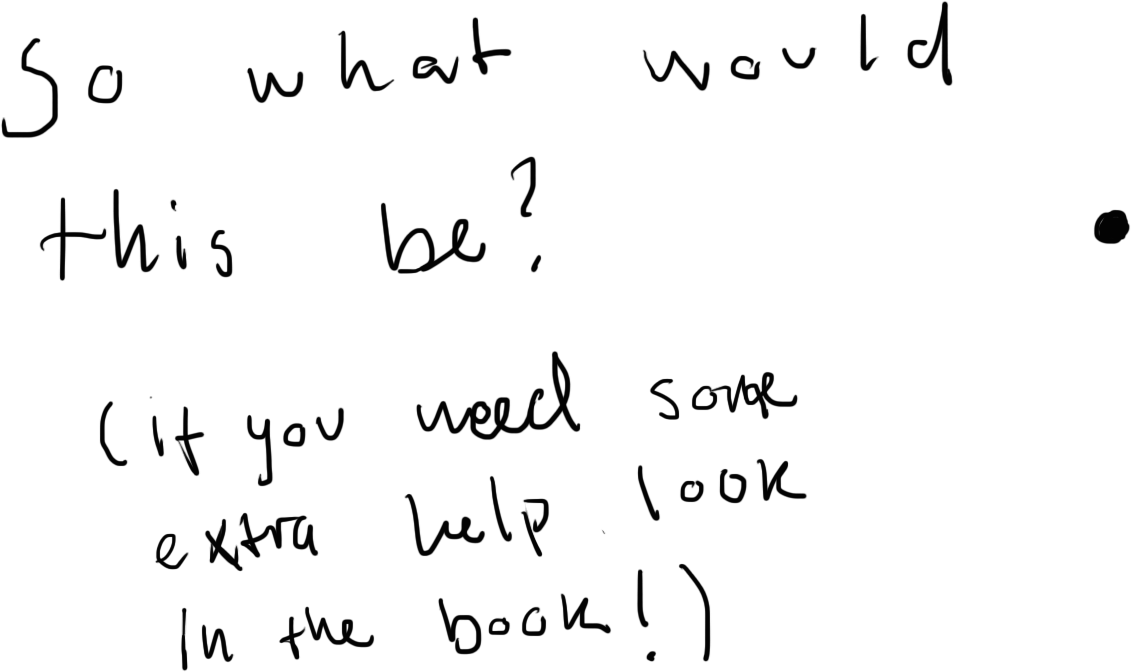 So what would
this be?
(if you need some
extra help look
In the book!)